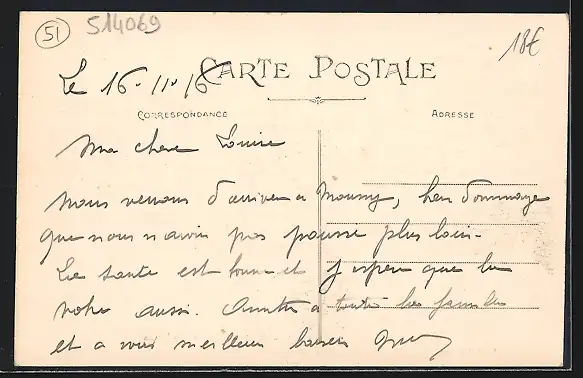 51
514069
18€
CARTE POSTALE
Le 16-11-16
CORRESPONDANCE
ADRESSE
Ma chere Louise
Nous venons d'arriver a Moussy, bien dommage
que nous n'avion pas poussé plus loin-
La santé est bonne et j'espere que la
votre aussi. toute la famille
et a vous meilleurs baisers